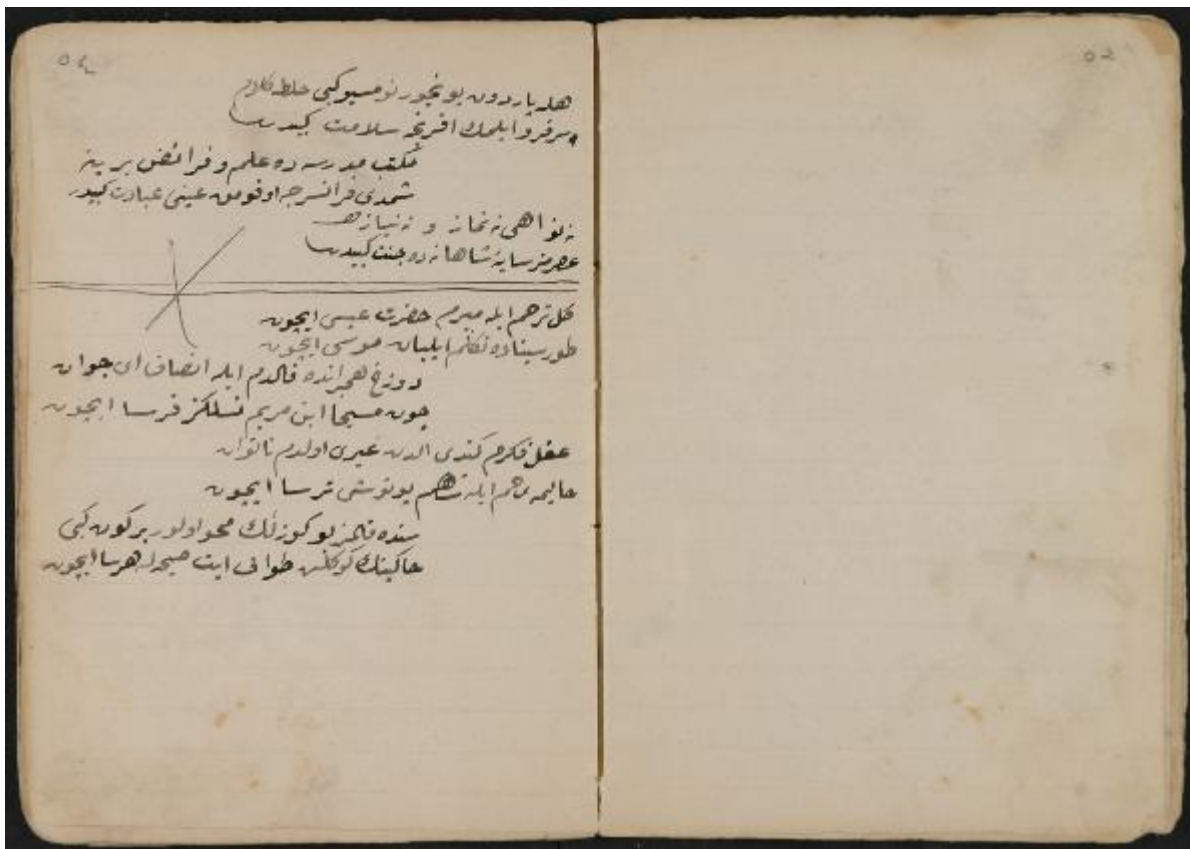 هله پاردون بونجور نو مسيو كبى خلط كلام
سرفرو ايلمك افرنجه سلامت كبيدر
مكتب مدرسه ده علم و فرائض يرينه
شمدى فرانسزجه اوقومق عينى عبادت كبيدر
نه نواهى نه نماز و نه نياز
عصرمز سايهٔ شاهانه ده جنت كبيدر
كل ترحم ايله ميرم حضرت عيسى ايچون
طور سيناده تكلم ايليان موسى ايچون
دوزخ هجرانده قالدم ايله انصاف اى جوان
چون مسيحا ابن مريم ترسا ايچون
عقل فكرم كندى الدن غيرى اولدم ناتوان
حاليمه رحم ايله بونوش ترسا ايچون
سنده قالمز بو كوزللك محو اولور بر كون كبى
كوكلن طواف ايت ايچون